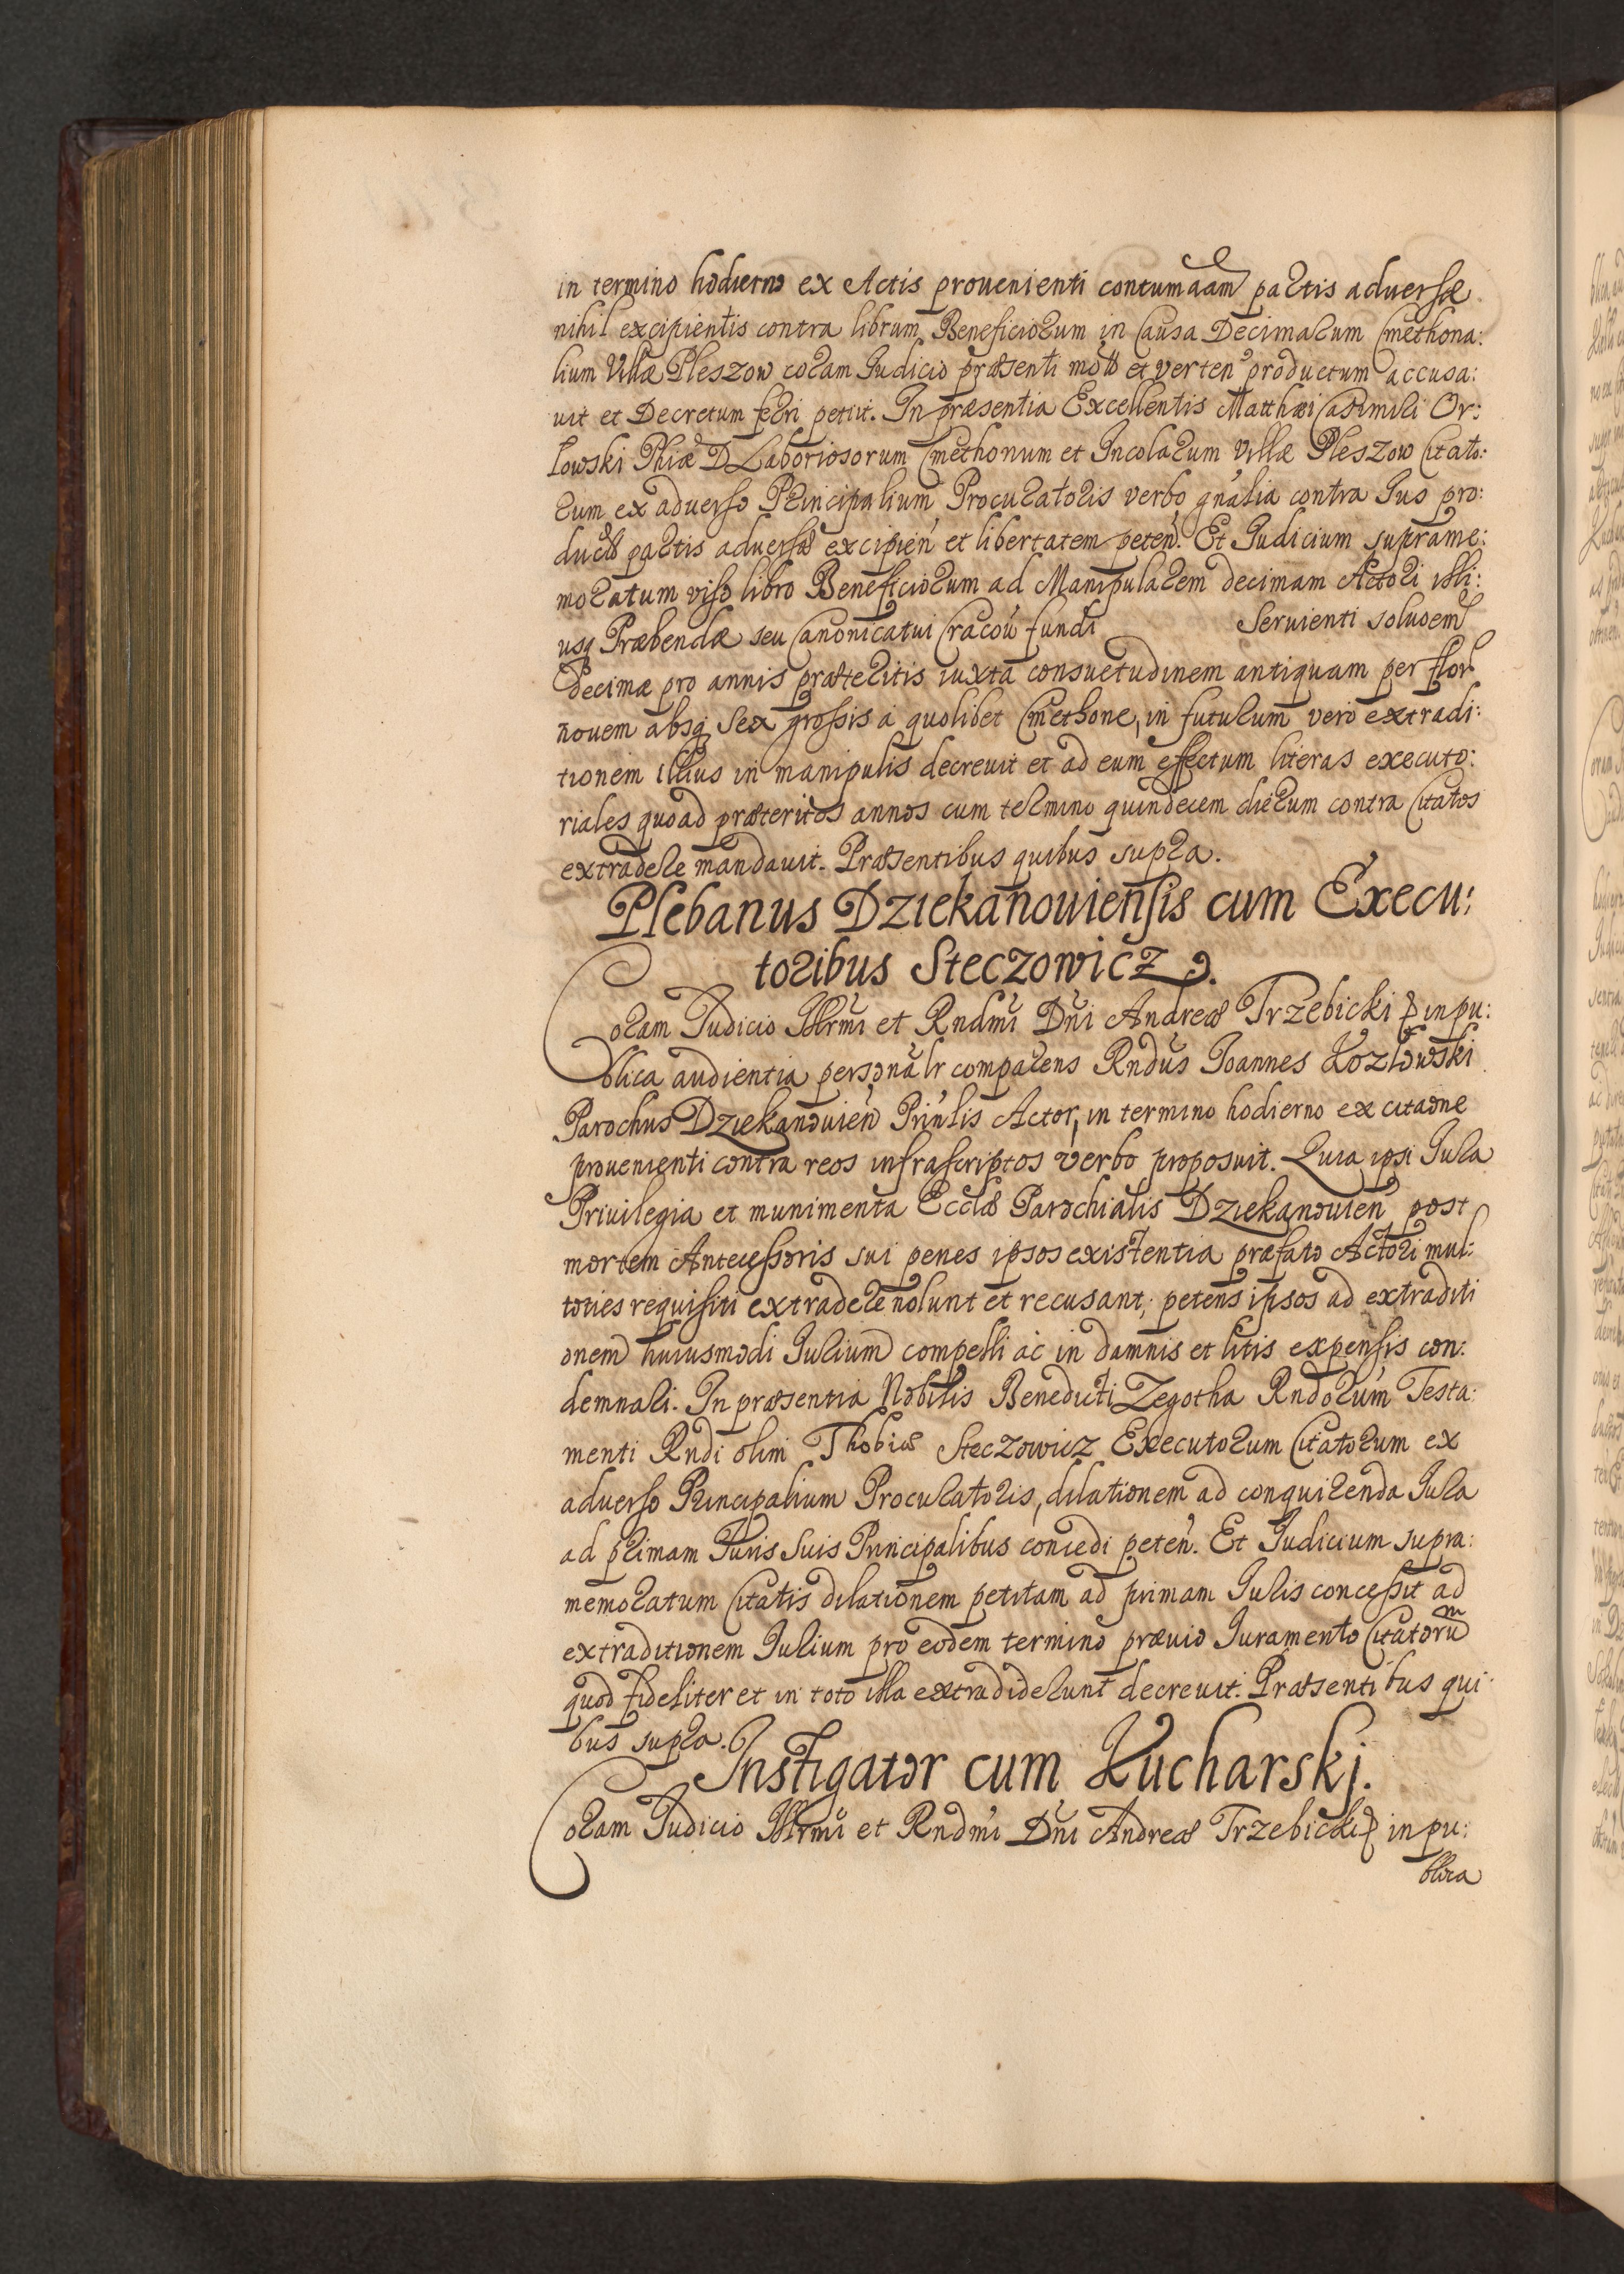 in termino hodierno ex Actis prouenienti contumaciam partis aduersæ
nihil excipientis contra librum Beneficiorum in Causa Decimarum Cmethona:
lium Villæ Pleszow coram Judicio præsenti motæ et verten productum accusa:
uit et Decretum ferri petiit. In præsentia Excellentis Matthæi Casimiri Or:
lowski Phiæ D Laboriosorum Cmethonum et Incolarum Villæ Pleszow Citato:
rum ex aduerso Principalium Procuratoris verbo gnalia contra Jus pro:
ductū partis aduersæ excipień et libertatem peteń. Et Judicium suprame:
moratum viso libro Beneficiorum ad Manipularem decimam Actori illi:
usq Præbendæ seu Canonicatui Cracoń fundi Seruienti soluoem
Decimæ pro annis præteritis iuxta consuetudinem antiquam per flor
nouem absq sex grossis a quolibet Cmethone, in futurum vero extradi:
tionem illius in manipulis decreuit et ad eum effectum literas executo:
riales quoad præteritos annos cum termino quindecem dierum contra Citatos
extradere mandauit. Præsentibus quibus supra.
Plebanus Dziekanouiensis cum Execu:
toribus Steczowicz.
Coram Judicio Illrmi et Rndmi Dni Andreæ Trzebicki in pu:
blica audientia personalr comparens Rndus Joannes Kozłowski
Parochus Dziekanouień Prinlis Actor, in termino hodierno ex citaone
prouenienti contra reos infrascriptos verbo proposuit. Quia ipsi Jura
Priuilegia et munimenta Ecclæ Parochialis Dziekanouień post
mortem Antecessoris sui penes ipsos existentia præfato Actori mul:
toties requisiti extradere nolunt et recusant, petens ipsos ad extraditi
onem huiusmodi Jurium compelli ac in damnis et litis expensis con:
demnari. In præsentia Nobilis Benedicti Zegotha Rndorum Testa:
menti Rndi olim Thobiæ Steczowicz Executorum Citatorum ex
aduerso Principalium Procuratoris, dilationem ad conquirenda Jura
ad primam Juris suis Principalibus concedi peteń. Et Judicium supra:
memoratum Citatis dilationem petitam ad primam Juris concessit ad
extraditionem Jurium pro eodem termino præuio Juramento Citatorū
quod fideliter et in toto illa extradiderunt decreuit. Præsentibus qui
bus supra.
Instigator cum Kucharskj.
Coram Judicio Illrmi et Rndmi Dni Andreæ Trzebicki in pu:
blica